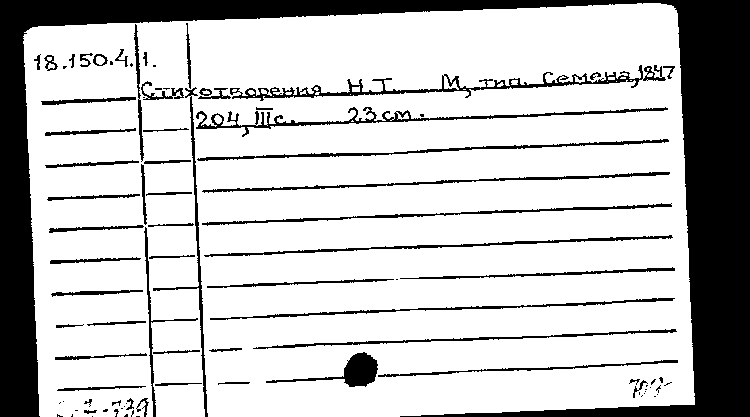 18.150.4.1.
Стихотворения Н.Т. М, тип. Семена, 1847
204, III с. 23 см.